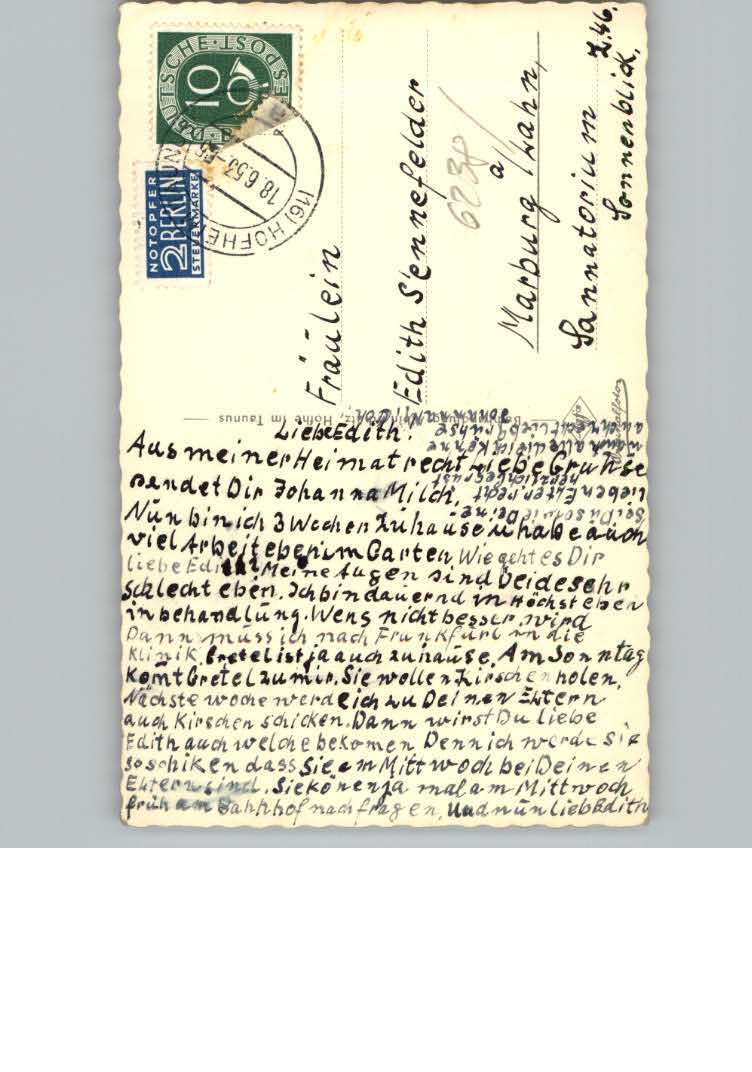 Liebe Edith!
Aus meiner Heimat recht Liebe Grühse
sendet Dir Johanna Milch,
Nün bin ich 3 Wochen zühaüse ü habe aüch
viel Arbeit eben im Garten Wie geht es Dir
liebe Edith? Meine Augen sind beide sehr
schlecht eben. Ich bin dauernd in Höchst eben
in behandlüng. Wens nicht besser wird
Dann muss ich nach Frankfürt in die
Klinik. Gretel ist ja auch zuhaüse. Am Sonntag
komt Gretel zu mir. Sie wollen Kirschen holen.
Nächste woche werde ich zu Deinen Eltern
auch Kirschen schicken. Dann wirst Du liebe
Edith auch welche bekomen Denn ich werde sie
so schiken dass Sie am Mittwoch bei Deinen
Eltern sind. Sie könen ja mal am Mittwoch
früh am Bahnhof nach fragen, Und nün lieb Edith
sei Du sowie Deine
lieben Eltern recht
herzlich gegrüst
auch alle die ich kenne
auch recht lieb Grühse
Johanna Milch
Hofheim Taunus
DEUTSCHE POST
10
NOTOPFER
2 BERLIN
STEUERMARKE
(16) HOFHEIM
18.6.53
Fräulein
Edith Sennefelder
6238/
Marburg a/Lahn,
Sannatorium
Sonnenblick,
Z.46.